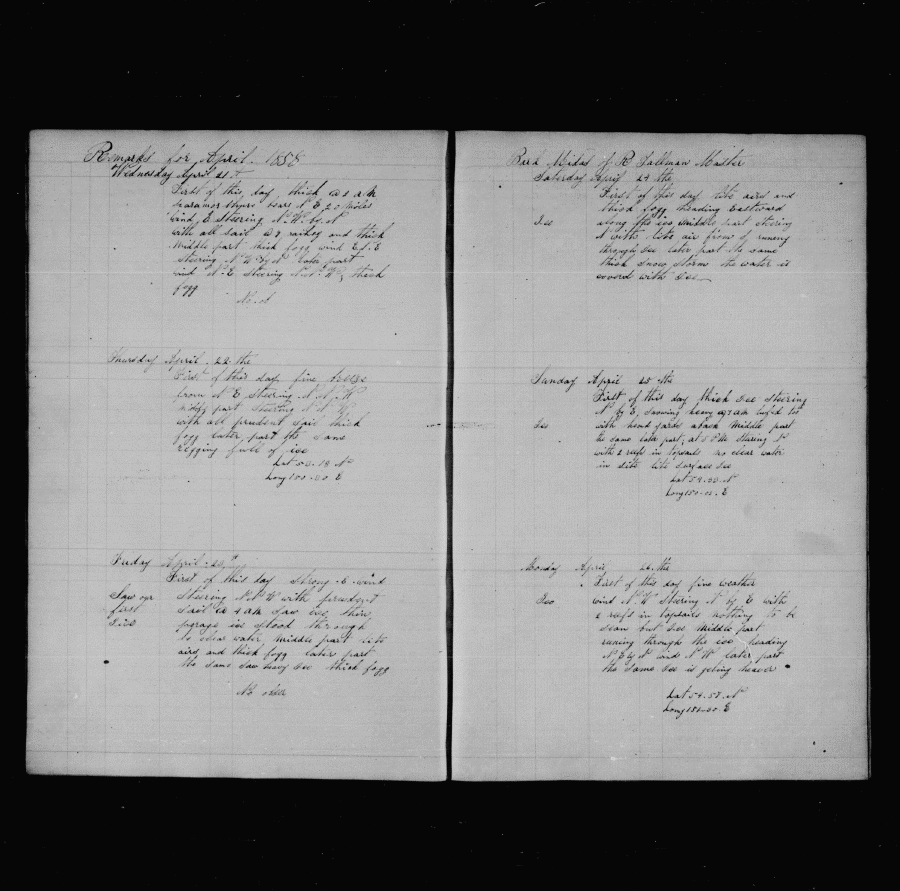 Remarks for April 1858
Wednesday April 21st
First of this day thick @ 2 a m
bears N E 20 Miles
wind E Steering N. W. by N
with all sail and thick
Middle part thick fogg wind E
Steering N W by N later part
wind N E Steering N. N. W, thick
fogg
No
Thursday April 22 the
First of this day fine breeze
from N E Steering N. N. W
middle part Steering N N W
with all prudent sail thick
fogg later part the same
of ice
Lat N
Long E
Friday April
First of this day Strong E wind
Saw our
first
Steering N N W with prudent
Sail @ 4 a m Saw ice, thin
ice stood through
to clear water, middle part lite
airs, and thick fogg later part
the same Saw heavy Ice thick fogg
No obser
Bark Midas of R Tallman Master
Saturday April 24 the
First of this day lite aird and
thick fogg heading Eastward
Ice
along the ice, Middle part steering
N with lite air from runing
through Ice later part the same
thick Snow Storm the water is
coverd with Ice
Sunday April 25 the
First of this day thick Ice Steering
N by E, Snowing heavy
Ice
with head yards aback Middle part
the same later part, at 5 P M Stering N
with 2 reefs in topsails no clear water
in site lite surface Ice
Lat 54 N
Long 150 E
Monday April 26 the
First of this day fine weather
Ice
wind N. W Steering N by E with
2 reefs in topsails nothing to be
Sean but Ice Middle part
runing through the ice heading
N E by N wind N W later part
the Same Ice is geting heaver
Lat 54-58 N
Long E